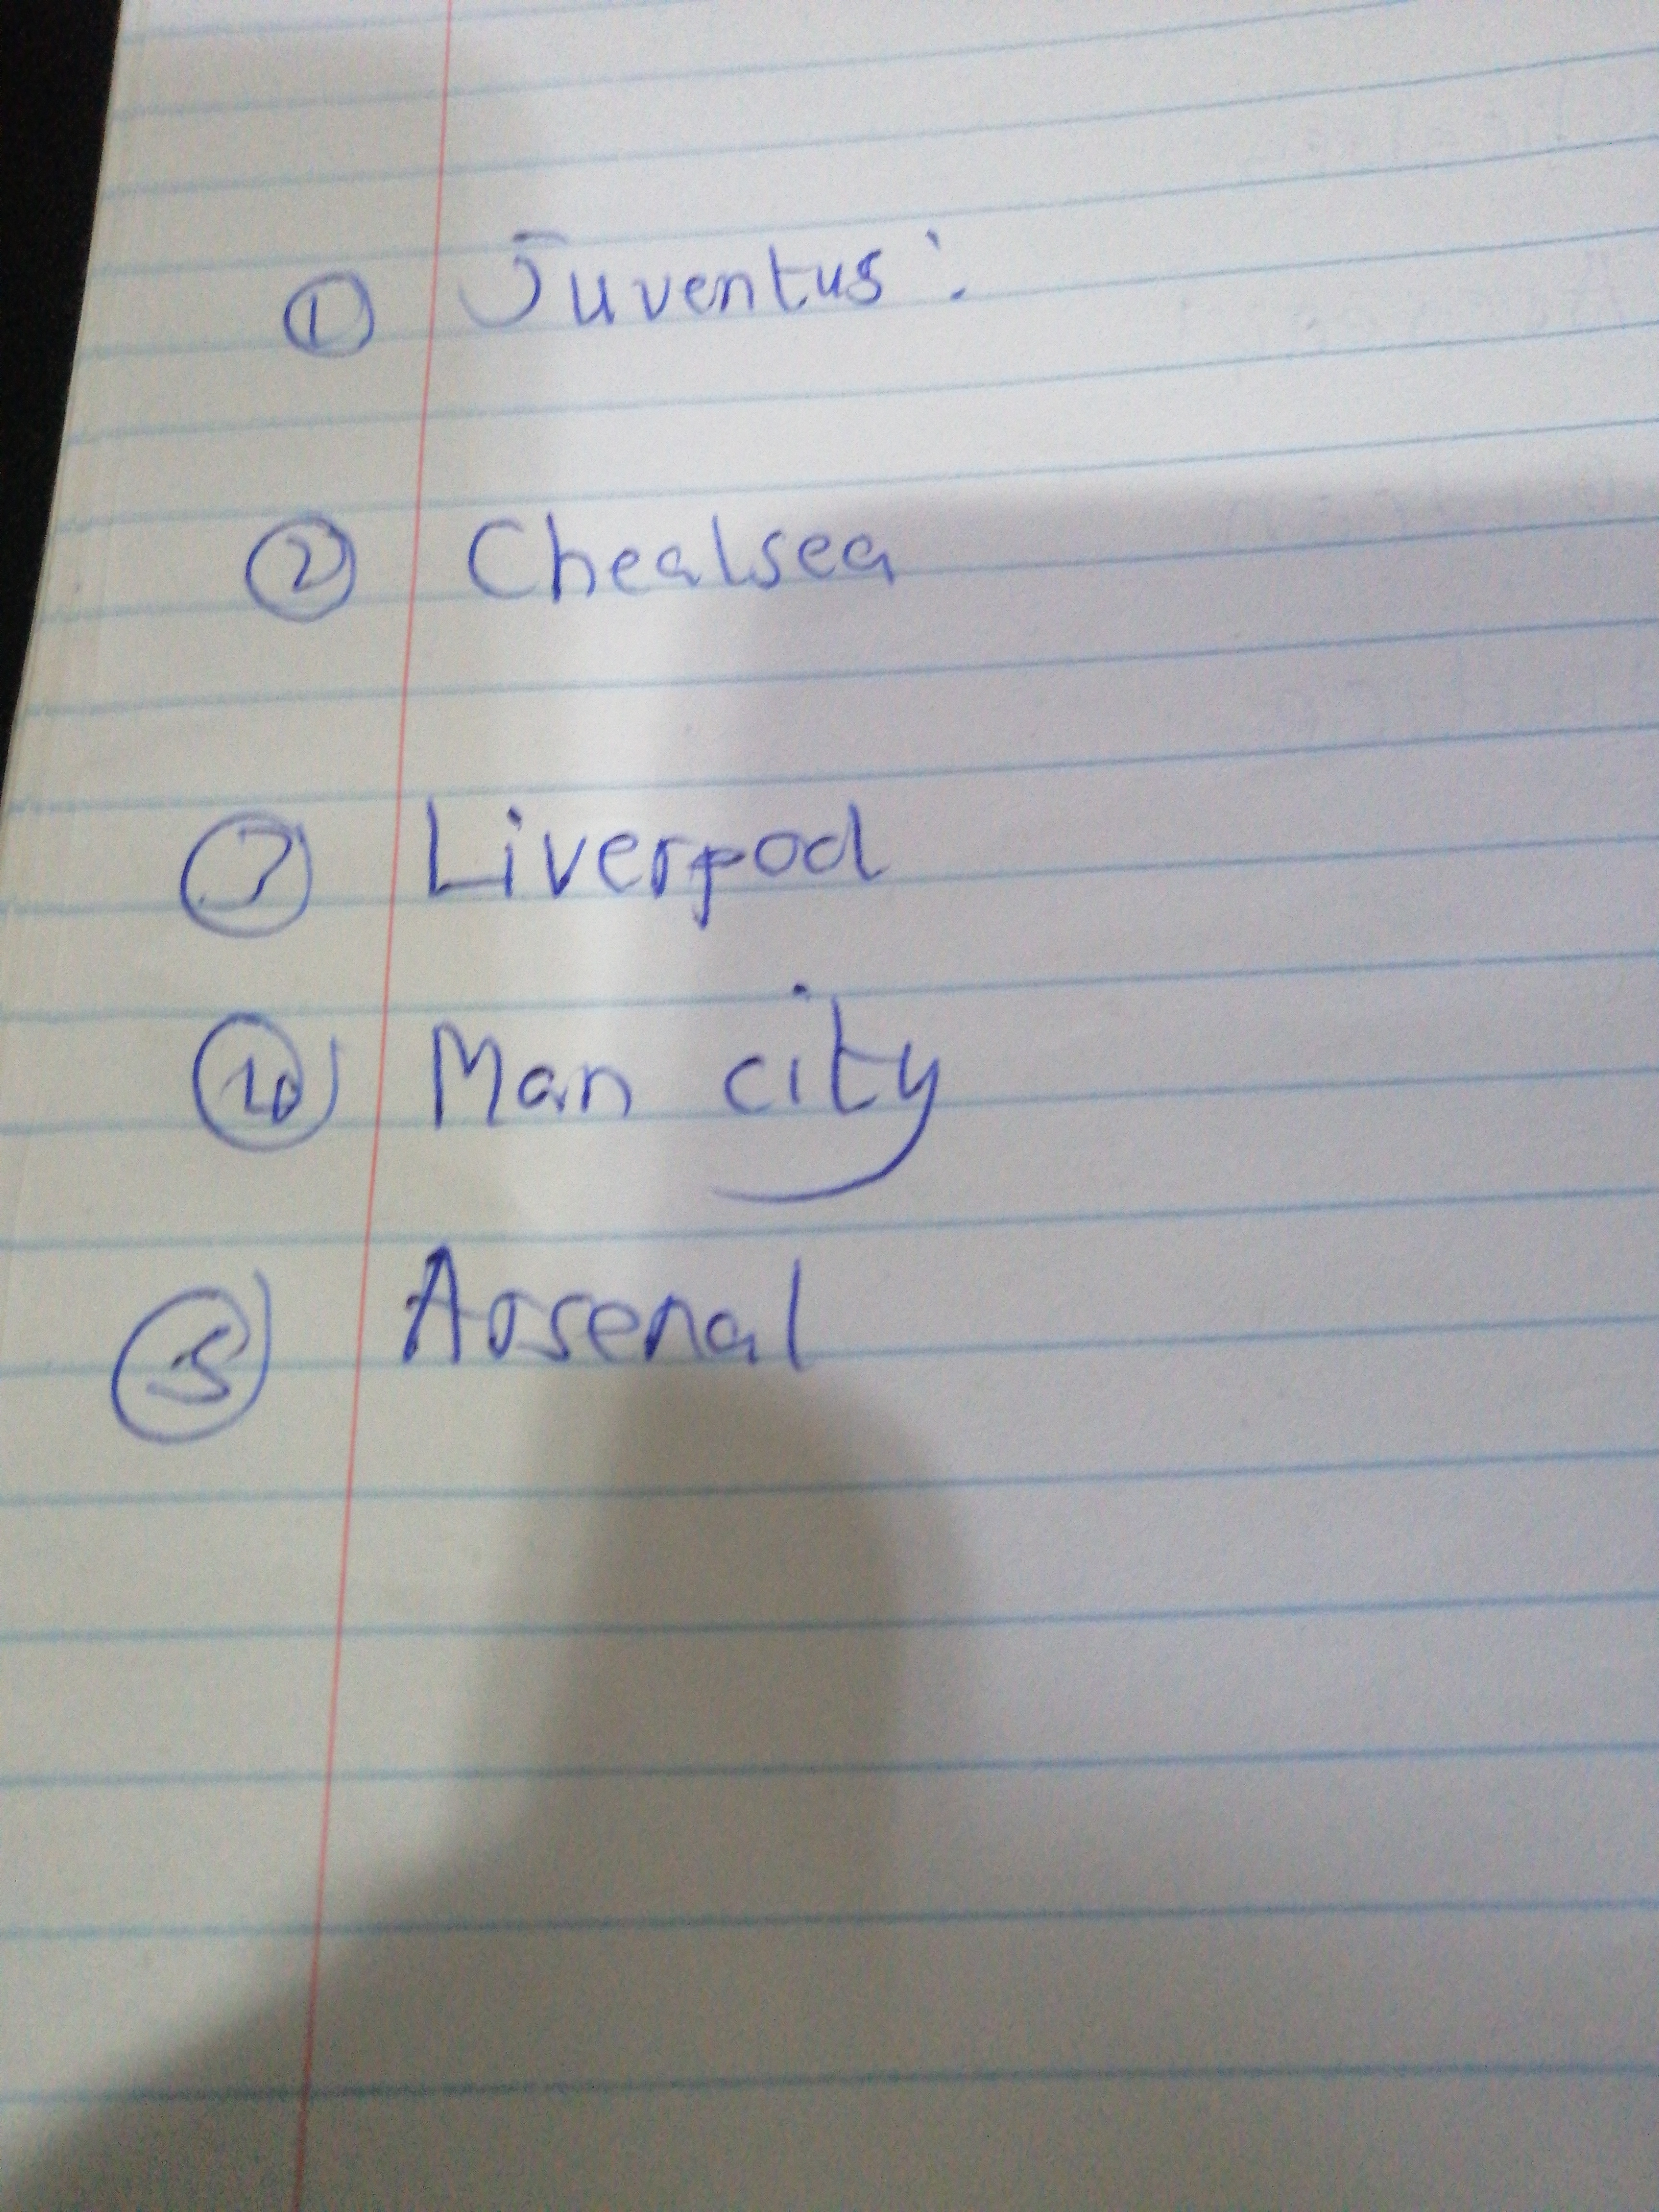 ① Juventus:
② Chealsea
Liverpool
Man city
⑤ Arsenal